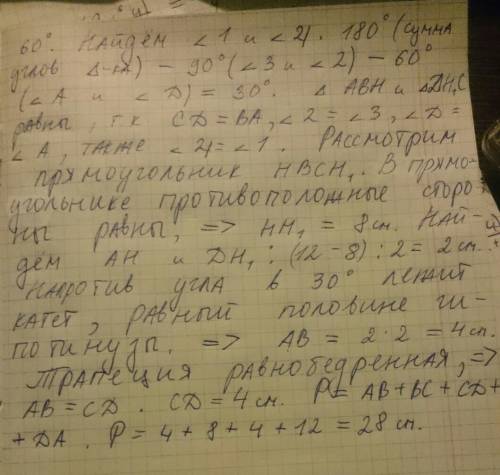 60°. Найдём ∠1 и ∠4. 180° (сумма
углов Δ-ка) – 90° (∠3 и ∠2) – 60°
(∠A и ∠D) = 30°. Δ ABH и ΔDH₁C
равны, т.к. CD = BA, ∠2 = ∠3, ∠D =
∠A, также ∠4 = ∠1. Рассмотрим
прямоугольник HBCH₁. В прямо-
угольнике противоположные сторо-
ны равны, => HH₁ = 8 см. Най-
дём AH и DH₁: (12 – 8) : 2 = 2 см.
Напротив угла в 30° лежит
катет, равный половине ги-
потинузы. => AB = 2 · 2 = 4 см.
Трапеция равнобедренная, =>
AB = CD. CD = 4 см. P = AB + BC + CD +
+ DA. P = 4 + 8 + 4 + 12 = 28 см.